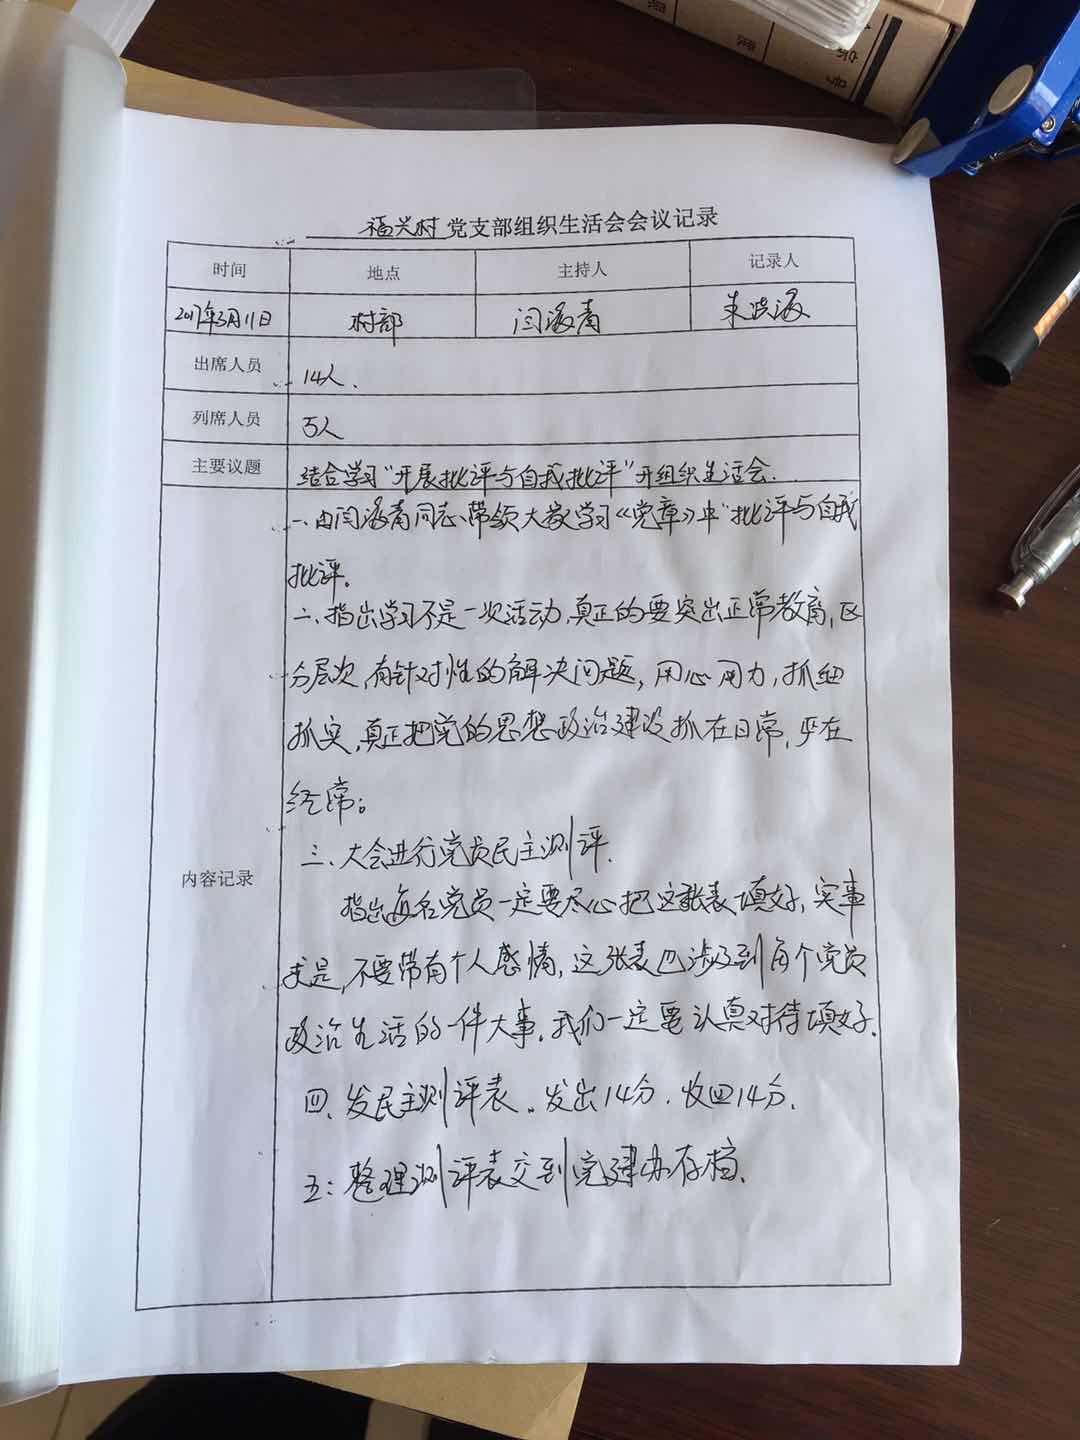 福兴村党支部组织生活会会议记录
时间 地点 主持人 记录人
2017年3月11日 村部 闫海青
出席人员 14人.
列席人员 5人
主要议题 结合学习“开展批评与自我批评”开组织生活会.
一.由闫海青同志、带领大家学习《党章》中“批评与自我
批评.
二、指出学习不是一次活动,真正的要突出正常教育,区
分层次,有针对性的解决问题,用心用力,抓细
抓实,真正把党的思想政治建设抓在日常,严在
经常。
内容记录
三、大会进行党员民主测评.
指出每名党员一定要尽心把这张表填好,实事
求是,不要带有个人感情,这张表也涉及到每个党员
政治生活的一件大事.我们一定要认真对待填好.
四、发民主测评表。发出14分.收回14分.
五:整理测评表交到党建办存档.